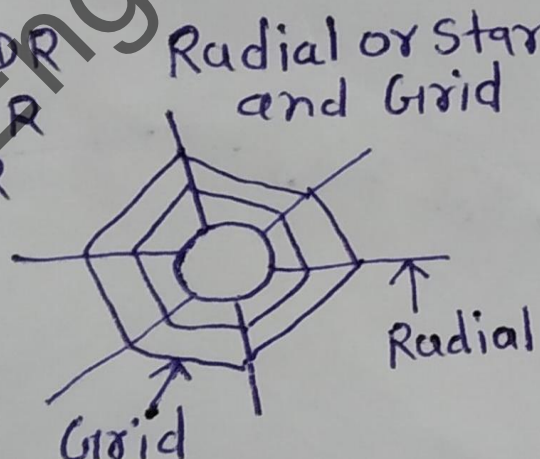 DR Radial or Star
R and Grid
R
Radial
Grid